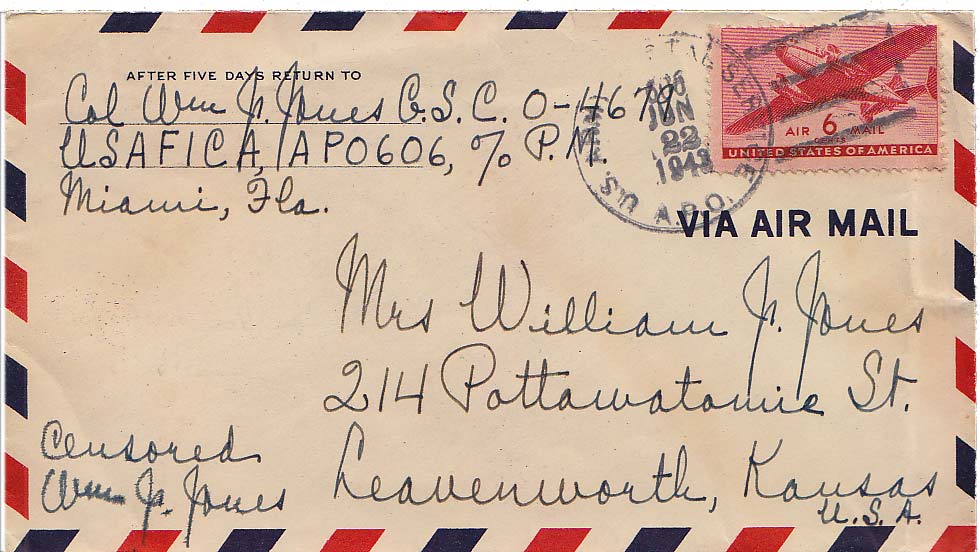 AFTER FIVE DAYS RETURN TO
Col Wm J. Jones G.S.C. O-4678
USAFICA, APO606, % P.M.
Miami, Fla.
JUN
22
1943
U.S. A.P.O.
AIR 6¢ MAIL
UNITED STATES OF AMERICA
VIA AIR MAIL
Mrs William J. Jones
214 Pottawatomie St.
Leavenworth, Kansas
U.S.A.
Censored
Wm J. Jones